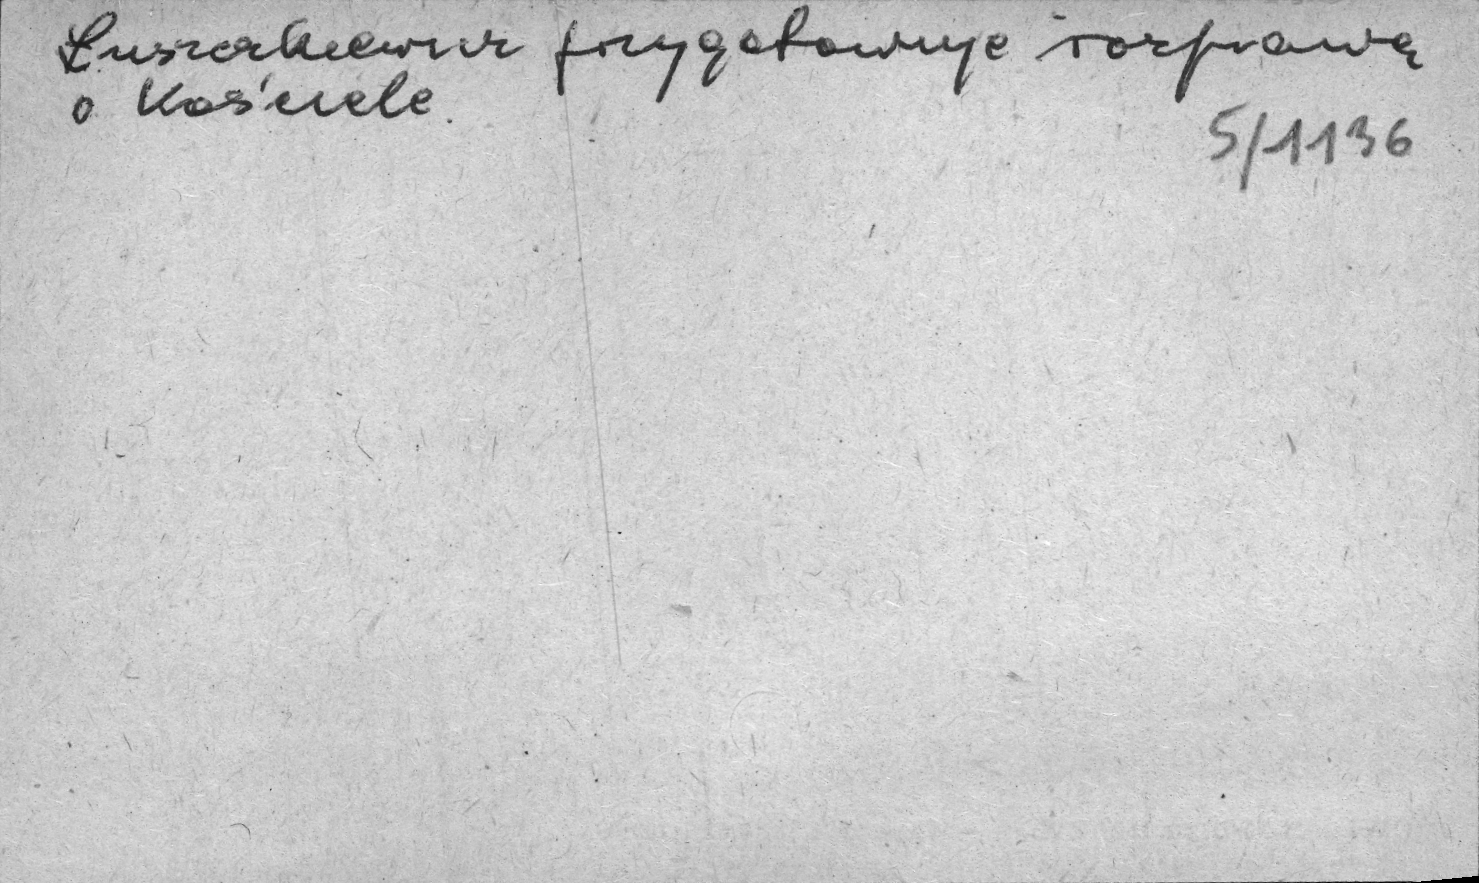 Łuszczkiewicz przygotowuje rozprawę
o kościele.
5/1136